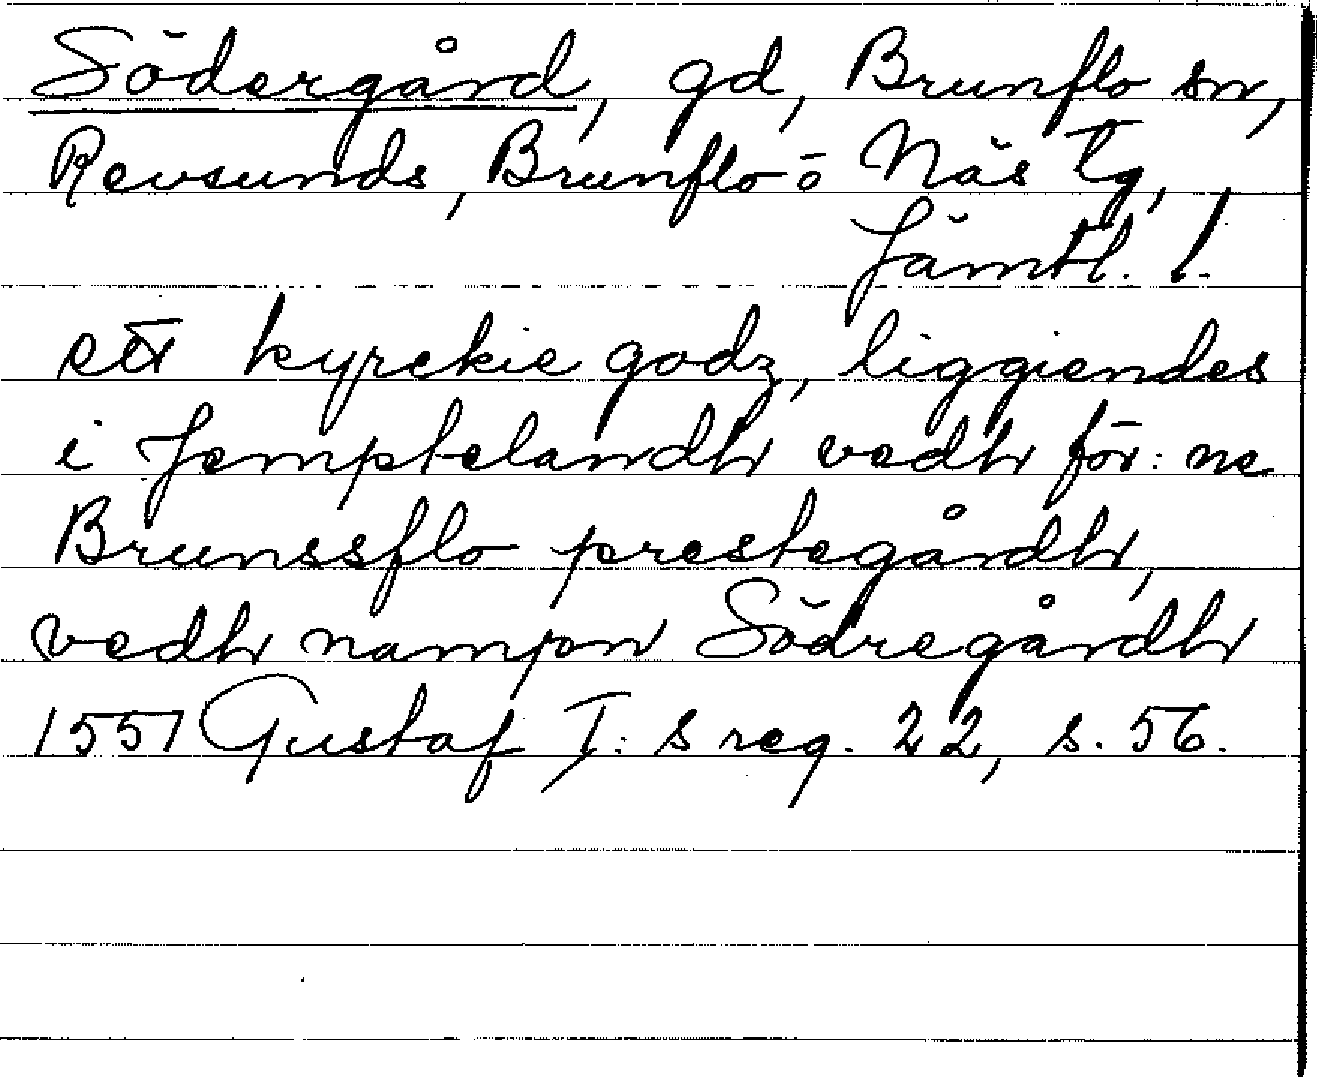 Södergård, gd, Brunflo sn,
Revsunds, Brunflo o Näs tg,
Jämtl. l.
ett kyrckie godz, liggiendes
i Jemptelandh vedh för: ne
Brunssflo prestegårdh,
vedh nampn Södregårdh
1551 Gustaf I: s reg. 22, s. 56.